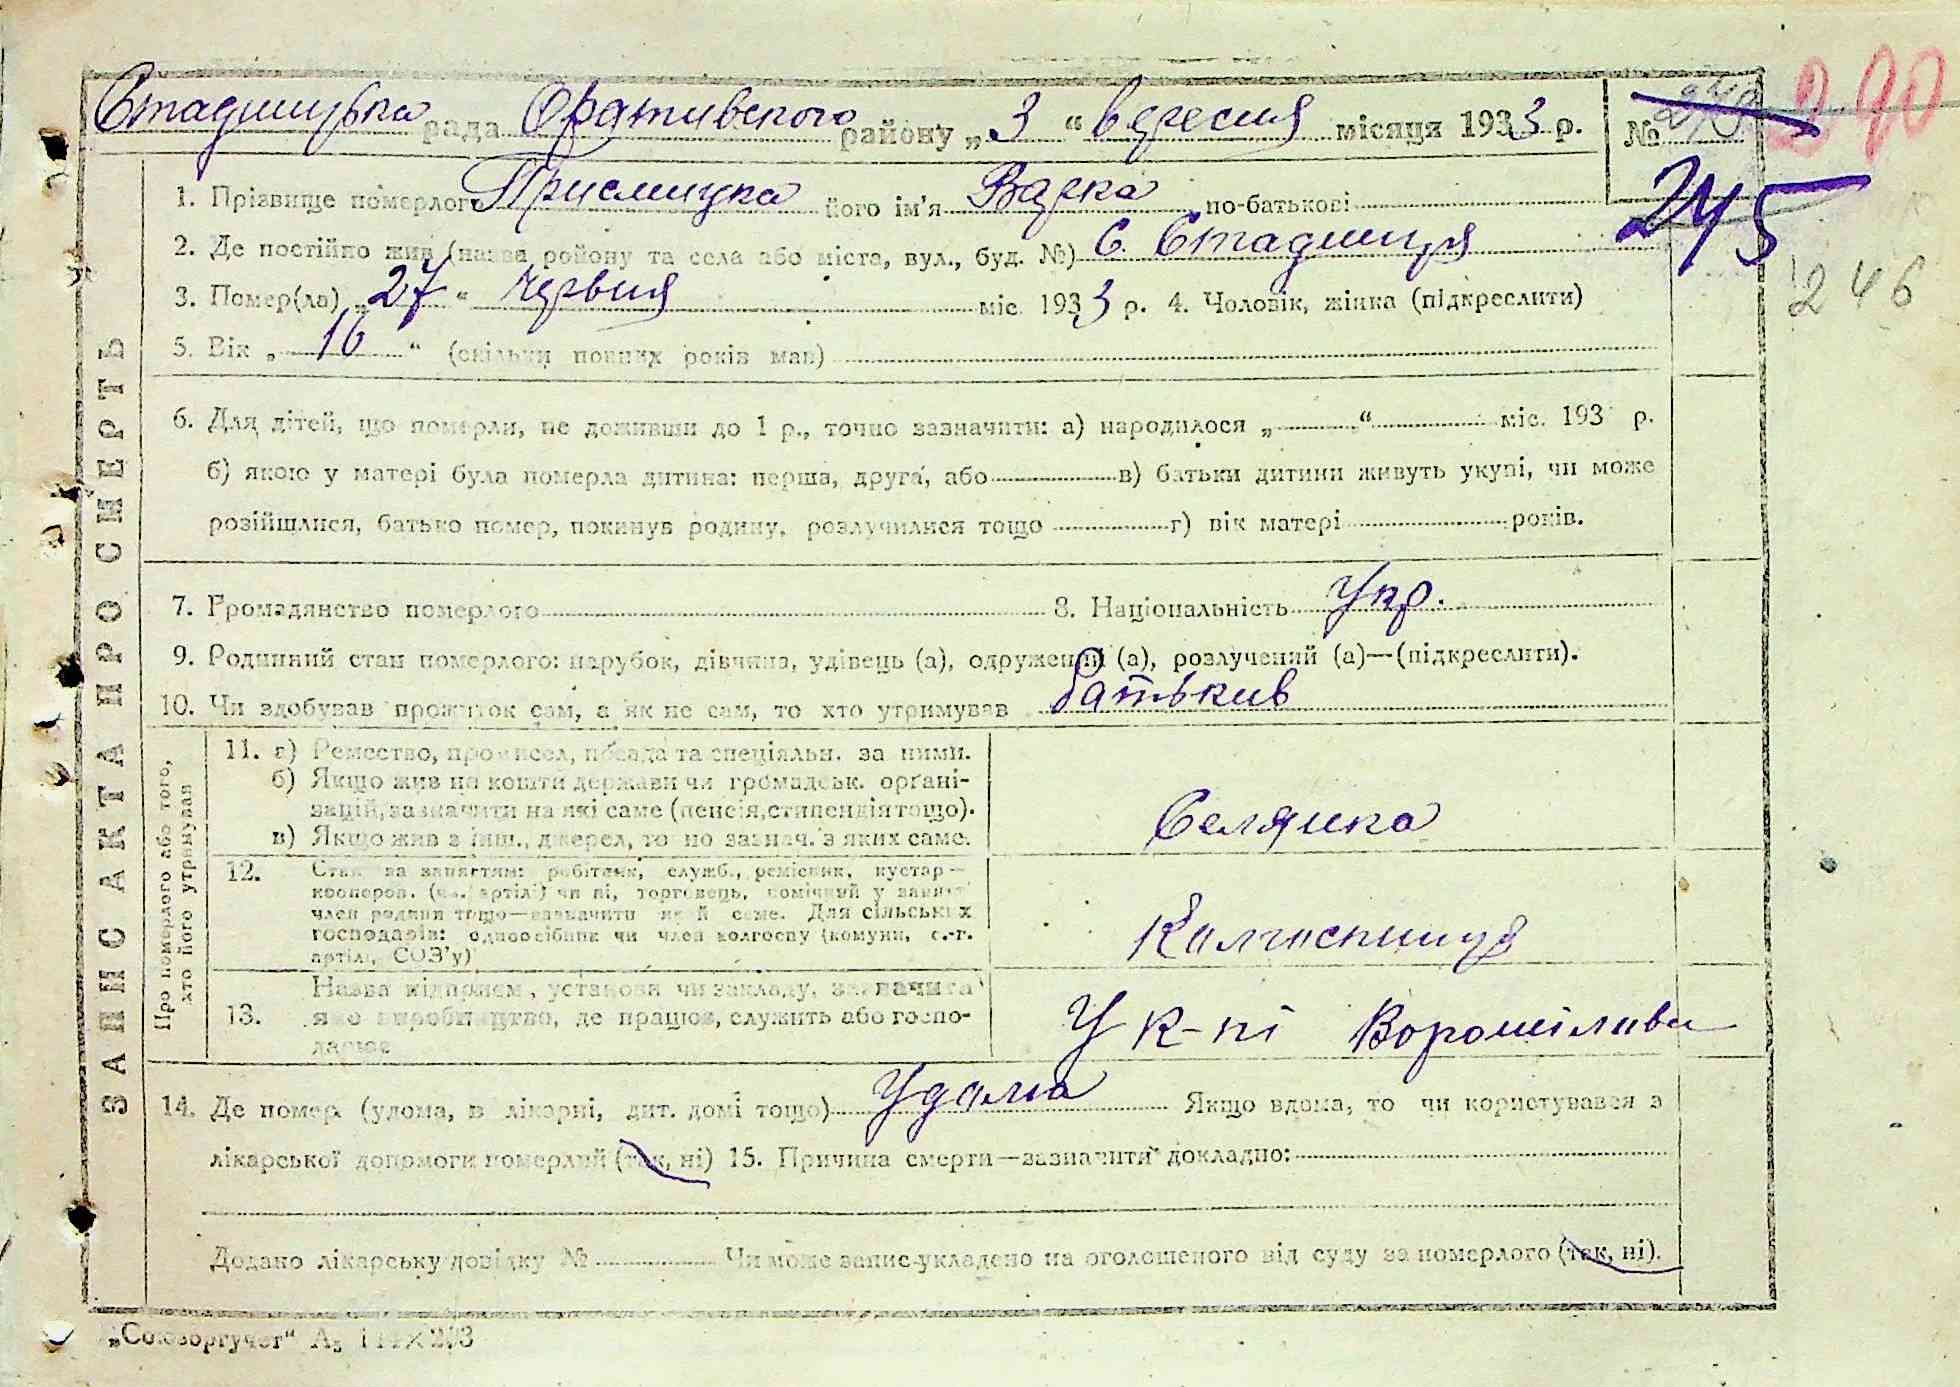 Стадницька рада Оративского району „3“ вересня місяця 1933 р. №
270
245
246
1. Прізвище померлого Присмицка його ім'я Варка по-батькові
2. Де постійно жив (назва району та села або міста, вул., буд. №) С. Стадниця
3. Помер(ла) „27“ червня міс. 1933 р. 4. Чоловік, жінка (підкреслити)
5. Вік „16“ (скільки повних років мав)
6. Для дітей, що померли, не доживши до 1 р., точно зазначити: а) народилося „ “ міс. 193 р.
б) якою у матері була померла дитина: перша, друга, або в) батьки дитини живуть укупі, чи може
розійшлися, батько помер, покинув родину, розлучилися тощо г) вік матері років.
7. Громадянство померлого 8. Національність Укр.
9. Родинний стан померлого: парубок, дівчина, удівець (а), одружений (а), розлучений (а)—(підкреслити).
10. Чи здобував прожиток сам, а як не сам, то хто утримував батьків
ЗАПИС АКТА ПРО СМЕРТЬ
Про померлого або того, хто його утримував
11. а) Ремество, промисел, посада та спеціяльн. за ними.
б) Якщо жив на кошти держави чи громадськ. орґані-
зацій, зазначити на які саме (пенсія, стипендія тощо).
в) Якщо жив з інш., джерел, то зазнач. з яких саме.
Селянка
12. Стан за заняттям: робітник, служб., ремісник, кустар—
кооперов. (чл. артілі) чи ні, торговець, помічний у занятті
член родини тощо—зазначити який саме. Для сільських
господарів: одноосібник чи член колгоспу (комуни, с.-г.
артілі, СОЗ'у)
Колгоспниця
13. Назва підприєм., установи чи закладу, зазначита
яке виробництво, де працює, служить або госпо-
дарює
У к-пі Ворошілова
14. Де помер (удома, в лікарні, дит. домі тощо) Удома Якщо вдома, то чи користувався з
лікарської допомоги померлий (так, ні) 15. Причина смерти—зазначити докладно:
Додано лікарську довідку № Чи може запис укладено на оголошеного від суду за померлого (так, ні).
„Союзоргучет“ А₅